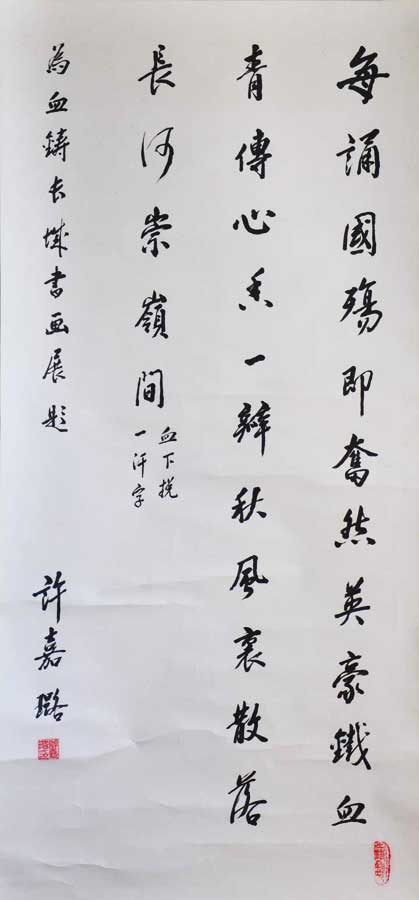 每誦國殤即奮然英豪鐵血
青傳心香一瓣秋風裏散落
長河崇嶺間
血下挩
一汗字
為血鑄长城書画展題
許嘉璐